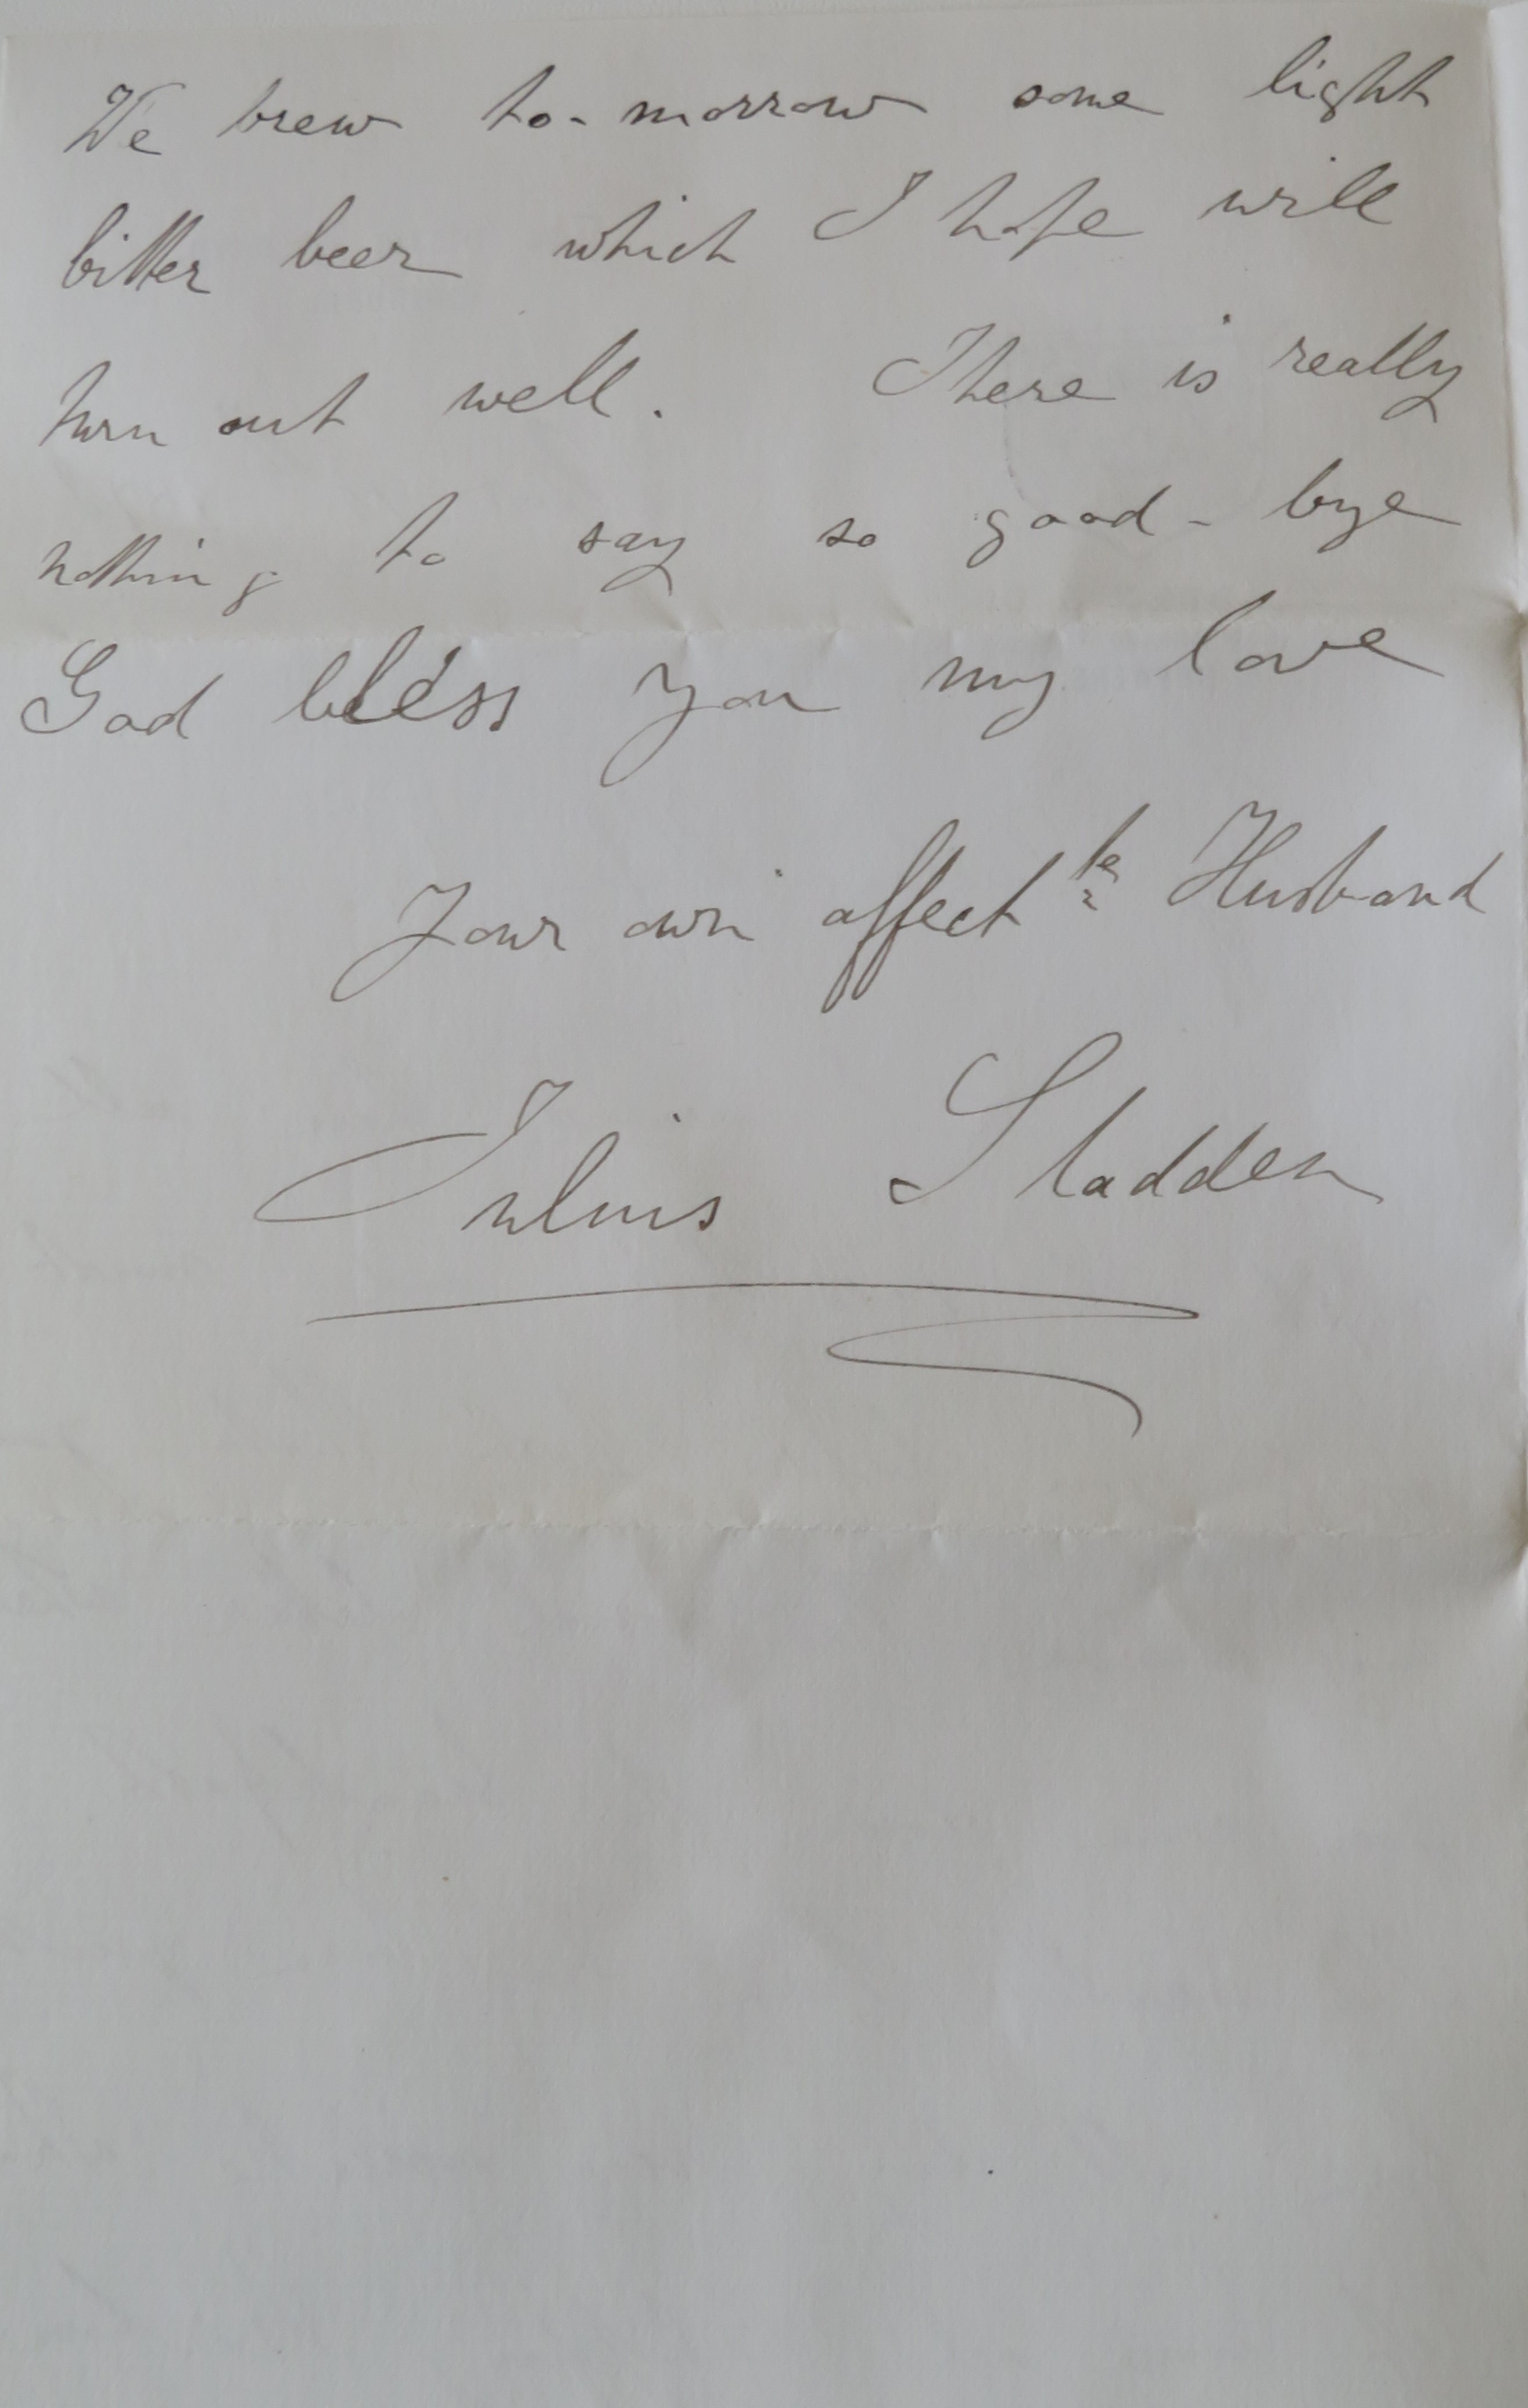 We brew to-morrow some light
bitter beer which I hope will
turn out well. There is really
nothing to say so good-bye
God bless you my love
Your own affect te Husband
Julius Sladden